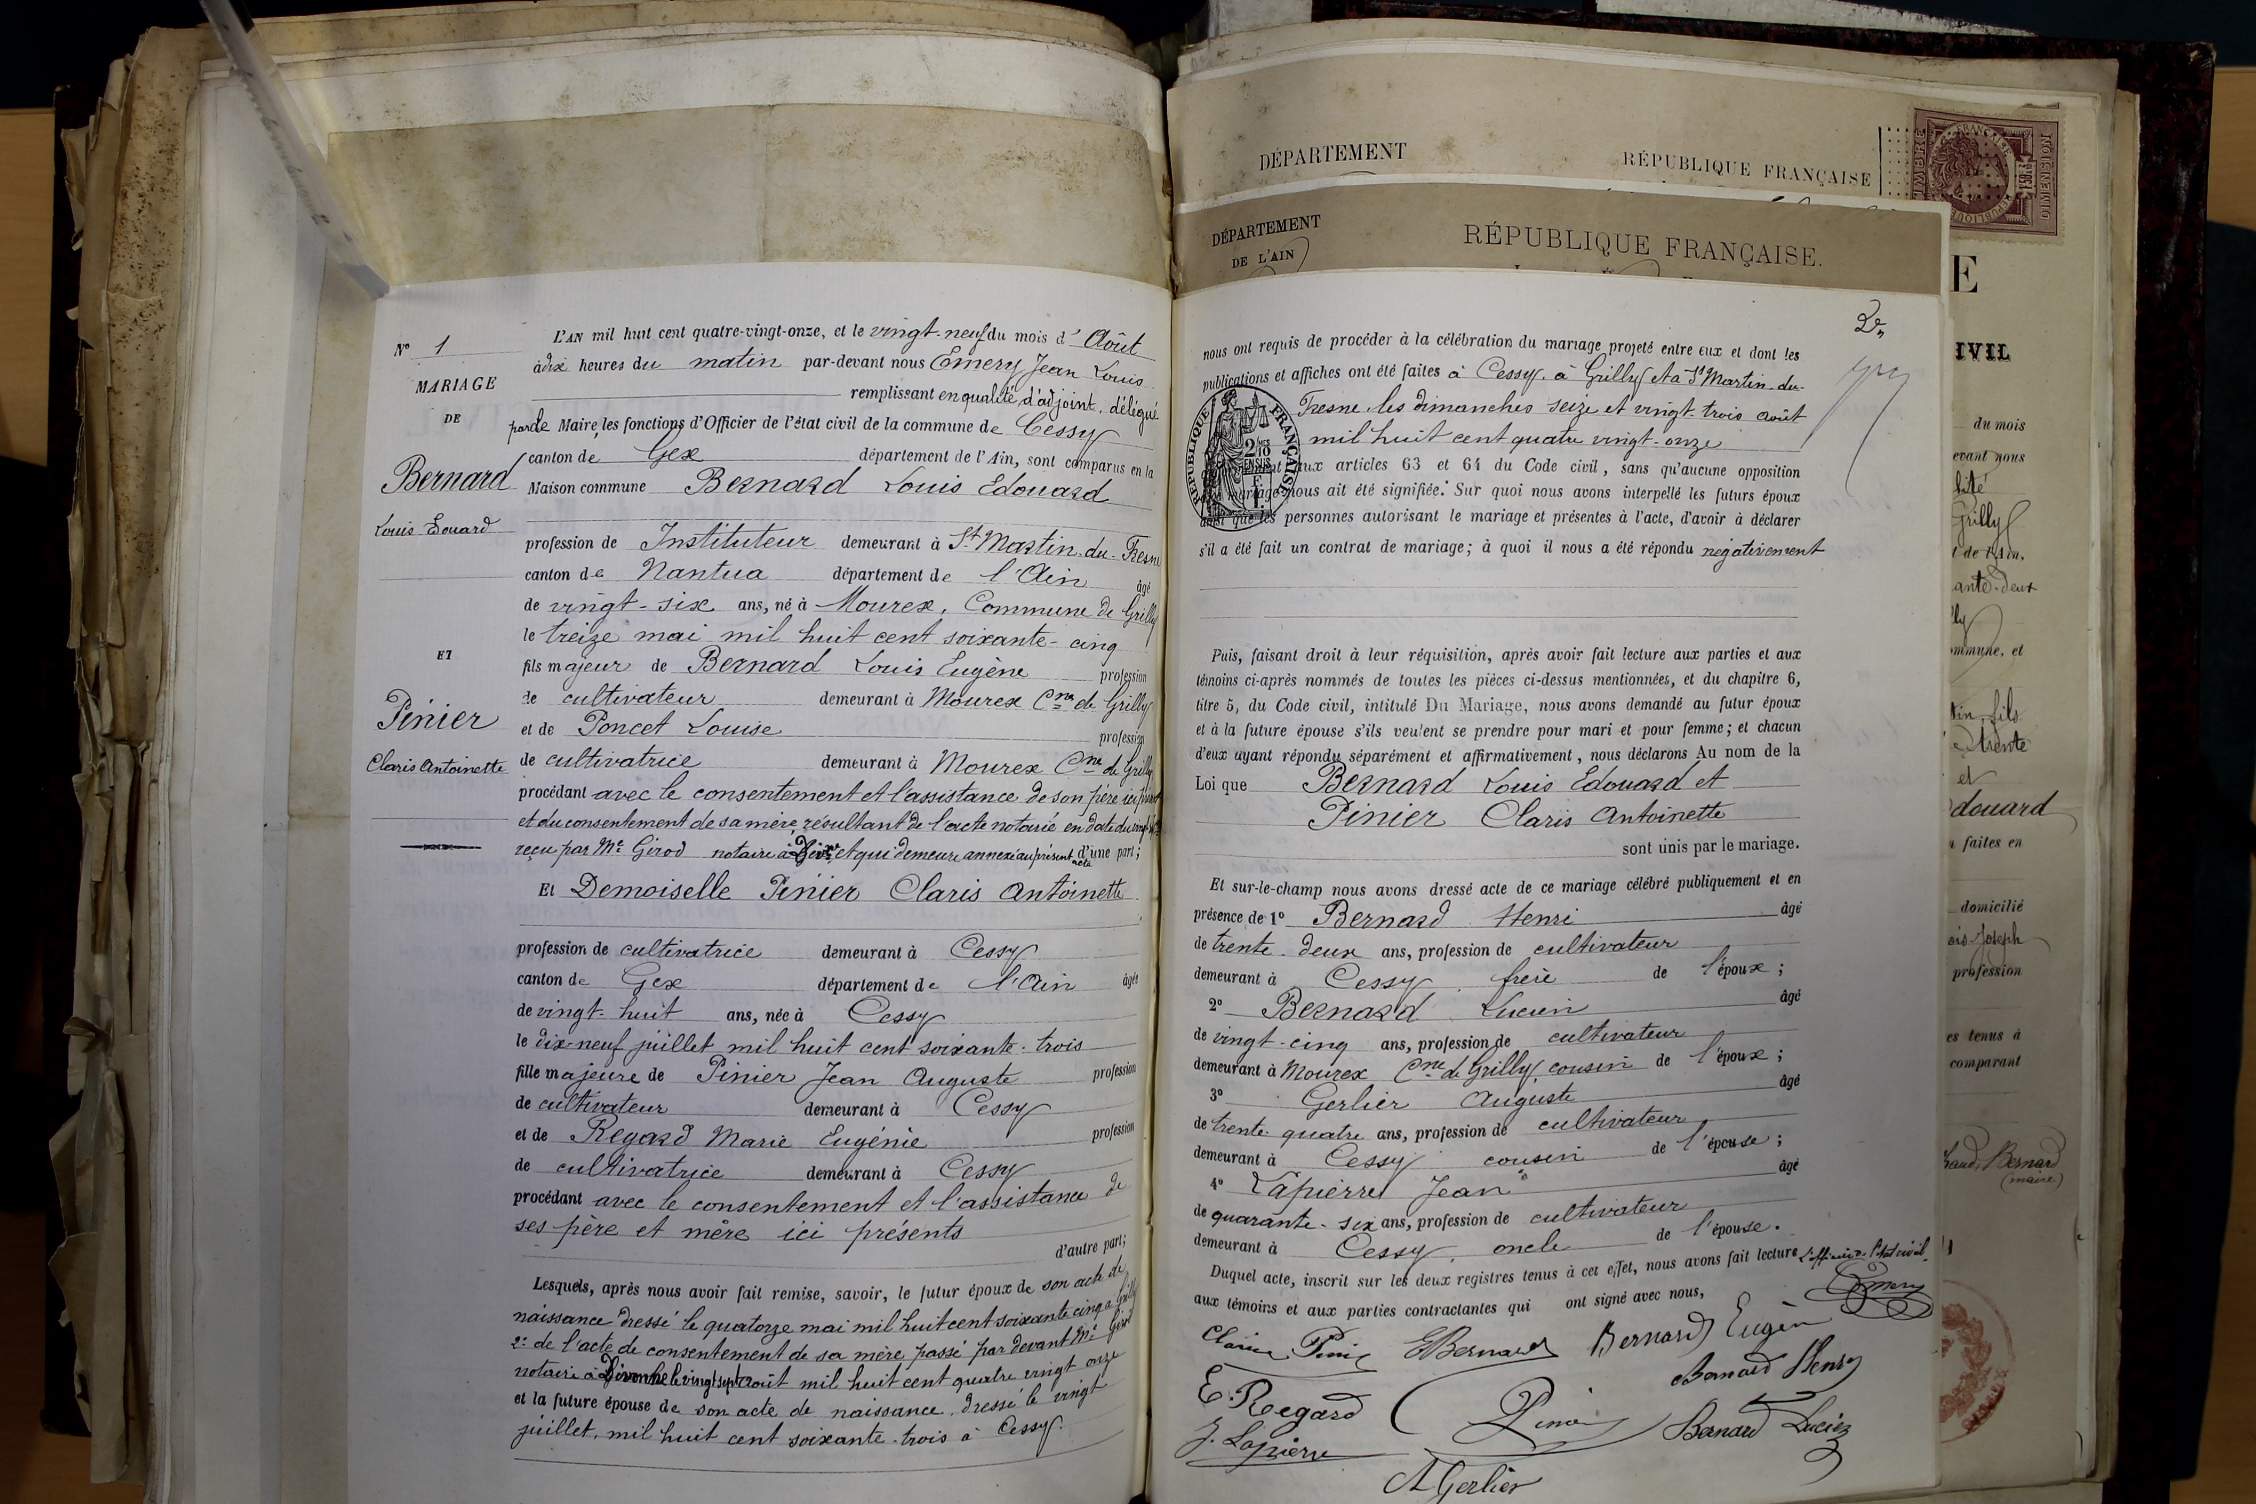 N° 1
MARIAGE
DE
Bernard
Louis Edouard
ET
Pinier
Claris Antoinette
L'AN mil huit cent quatre-vingt-onze, et le vingt-neuf du mois d'Août
à dix heures du matin par-devant nous Emery Jean Louis
remplissant en qualité d'adjoint, délégué
par le Maire, les fonctions d'Officier de l'état civil de la commune de Cessy
canton de Gex département de l'Ain, sont comparus en la
Maison commune Bernard Louis Edouard
profession de Instituteur demeurant à St Martin-du-Fresne
canton de Nantua département de l'Ain âgé
de vingt-six ans, né à Mourex, Commune de Grilly
le treize mai mil huit cent soixante-cinq
fils majeur de Bernard Louis Eugène profession
de cultivateur demeurant à Mourex Cne de Grilly
et de Poncet Louise profession
de cultivatrice demeurant à Mourex Cne de Grilly
procédant avec le consentement et l'assistance de son père ici présent
et du consentement de sa mère, résultant de l'acte notarié en date du vingt-sept
reçu par Me Girod notaire à et qui demeure annexé au présent acte d'une part;
Et Demoiselle Pinier Claris Antoinette
profession de cultivatrice demeurant à Cessy
canton de Gex département de l'Ain âgée
de vingt-huit ans, née à Cessy
le dix-neuf juillet mil huit cent soixante-trois
fille majeure de Pinier Jean Auguste profession
de cultivateur demeurant à Cessy
et de Regard Marie Eugénie profession
de cultivatrice demeurant à Cessy
procédant avec le consentement et l'assistance de
ses père et mère ici présents
d'autre part;
Lesquels, après nous avoir fait remise, savoir, le futur époux de son acte de
naissance dressé le quatorze mai mil huit cent soixante cinq à Grilly
2° de l'acte de consentement de sa mère passé par devant Me Girod
notaire à Divonne le vingt sept août mil huit cent quatre vingt onze
et la future épouse de son acte de naissance dressé le vingt
juillet, mil huit cent soixante-trois à Cessy.
DÉPARTEMENT
RÉPUBLIQUE FRANÇAISE
DIMENSION
DÉPARTEMENT
DE L'AIN
RÉPUBLIQUE FRANÇAISE.
nous ont requis de procéder à la célébration du mariage projeté entre eux et dont les
publications et affiches ont été faites à Cessy, à Grilly et à St Martin-du-
Fresne les dimanches seize et vingt-trois août
mil huit cent quatre vingt-onze
RÉPUBLIQUE FRANÇAISE
aux articles 63 et 64 du Code civil, sans qu'aucune opposition
mariage nous ait été signifiée. Sur quoi nous avons interpellé les futurs époux
ainsi que les personnes autorisant le mariage et présentes à l'acte, d'avoir à déclarer
s'il a été fait un contrat de mariage; à quoi il nous a été répondu négativement
Puis, faisant droit à leur réquisition, après avoir fait lecture aux parties et aux
témoins ci-après nommés de toutes les pièces ci-dessus mentionnées, et du chapitre 6,
titre 5, du Code civil, intitulé Du Mariage, nous avons demandé au futur époux
et à la future épouse s'ils veulent se prendre pour mari et pour femme; et chacun
d'eux ayant répondu séparément et affirmativement, nous déclarons Au nom de la
Loi que Bernard Louis Edouard et
Pinier Claris Antoinette
sont unis par le mariage.
Et sur-le-champ nous avons dressé acte de ce mariage célébré publiquement et en
présence de 1° Bernard Henri âgé
de trente-deux ans, profession de cultivateur
demeurant à Cessy, frère de l'époux;
2° Bernard Lucien âgé
de vingt-cinq ans, profession de cultivateur
demeurant à Mourex Cne de Grilly, cousin de l'époux;
3° Gerlier Auguste âgé
de trente-quatre ans, profession de cultivateur
demeurant à Cessy cousin de l'épouse;
4° Lapierre Jean âgé
de quarante-six ans, profession de cultivateur
demeurant à Cessy, oncle de l'épouse.
Duquel acte, inscrit sur les deux registres tenus à cet effet, nous avons fait lecture L'officier de l'état civil,
aux témoins et aux parties contractantes qui ont signé avec nous,
Emery
E Bernard Bernard Eugène
Bernard Henry
E. Regard
Pinier
Bernard Lucien
J. Lapierre
A Gerlier
E
IVIL
du mois
evant nous
Grilly
t de l'Ain.
ante-deux
lly
ommune, et
tin, fils
trente
et
douard
faites en
domicilié
ois-Joseph
profession
es tenus à
comparant
haud, Bernard
(maire)